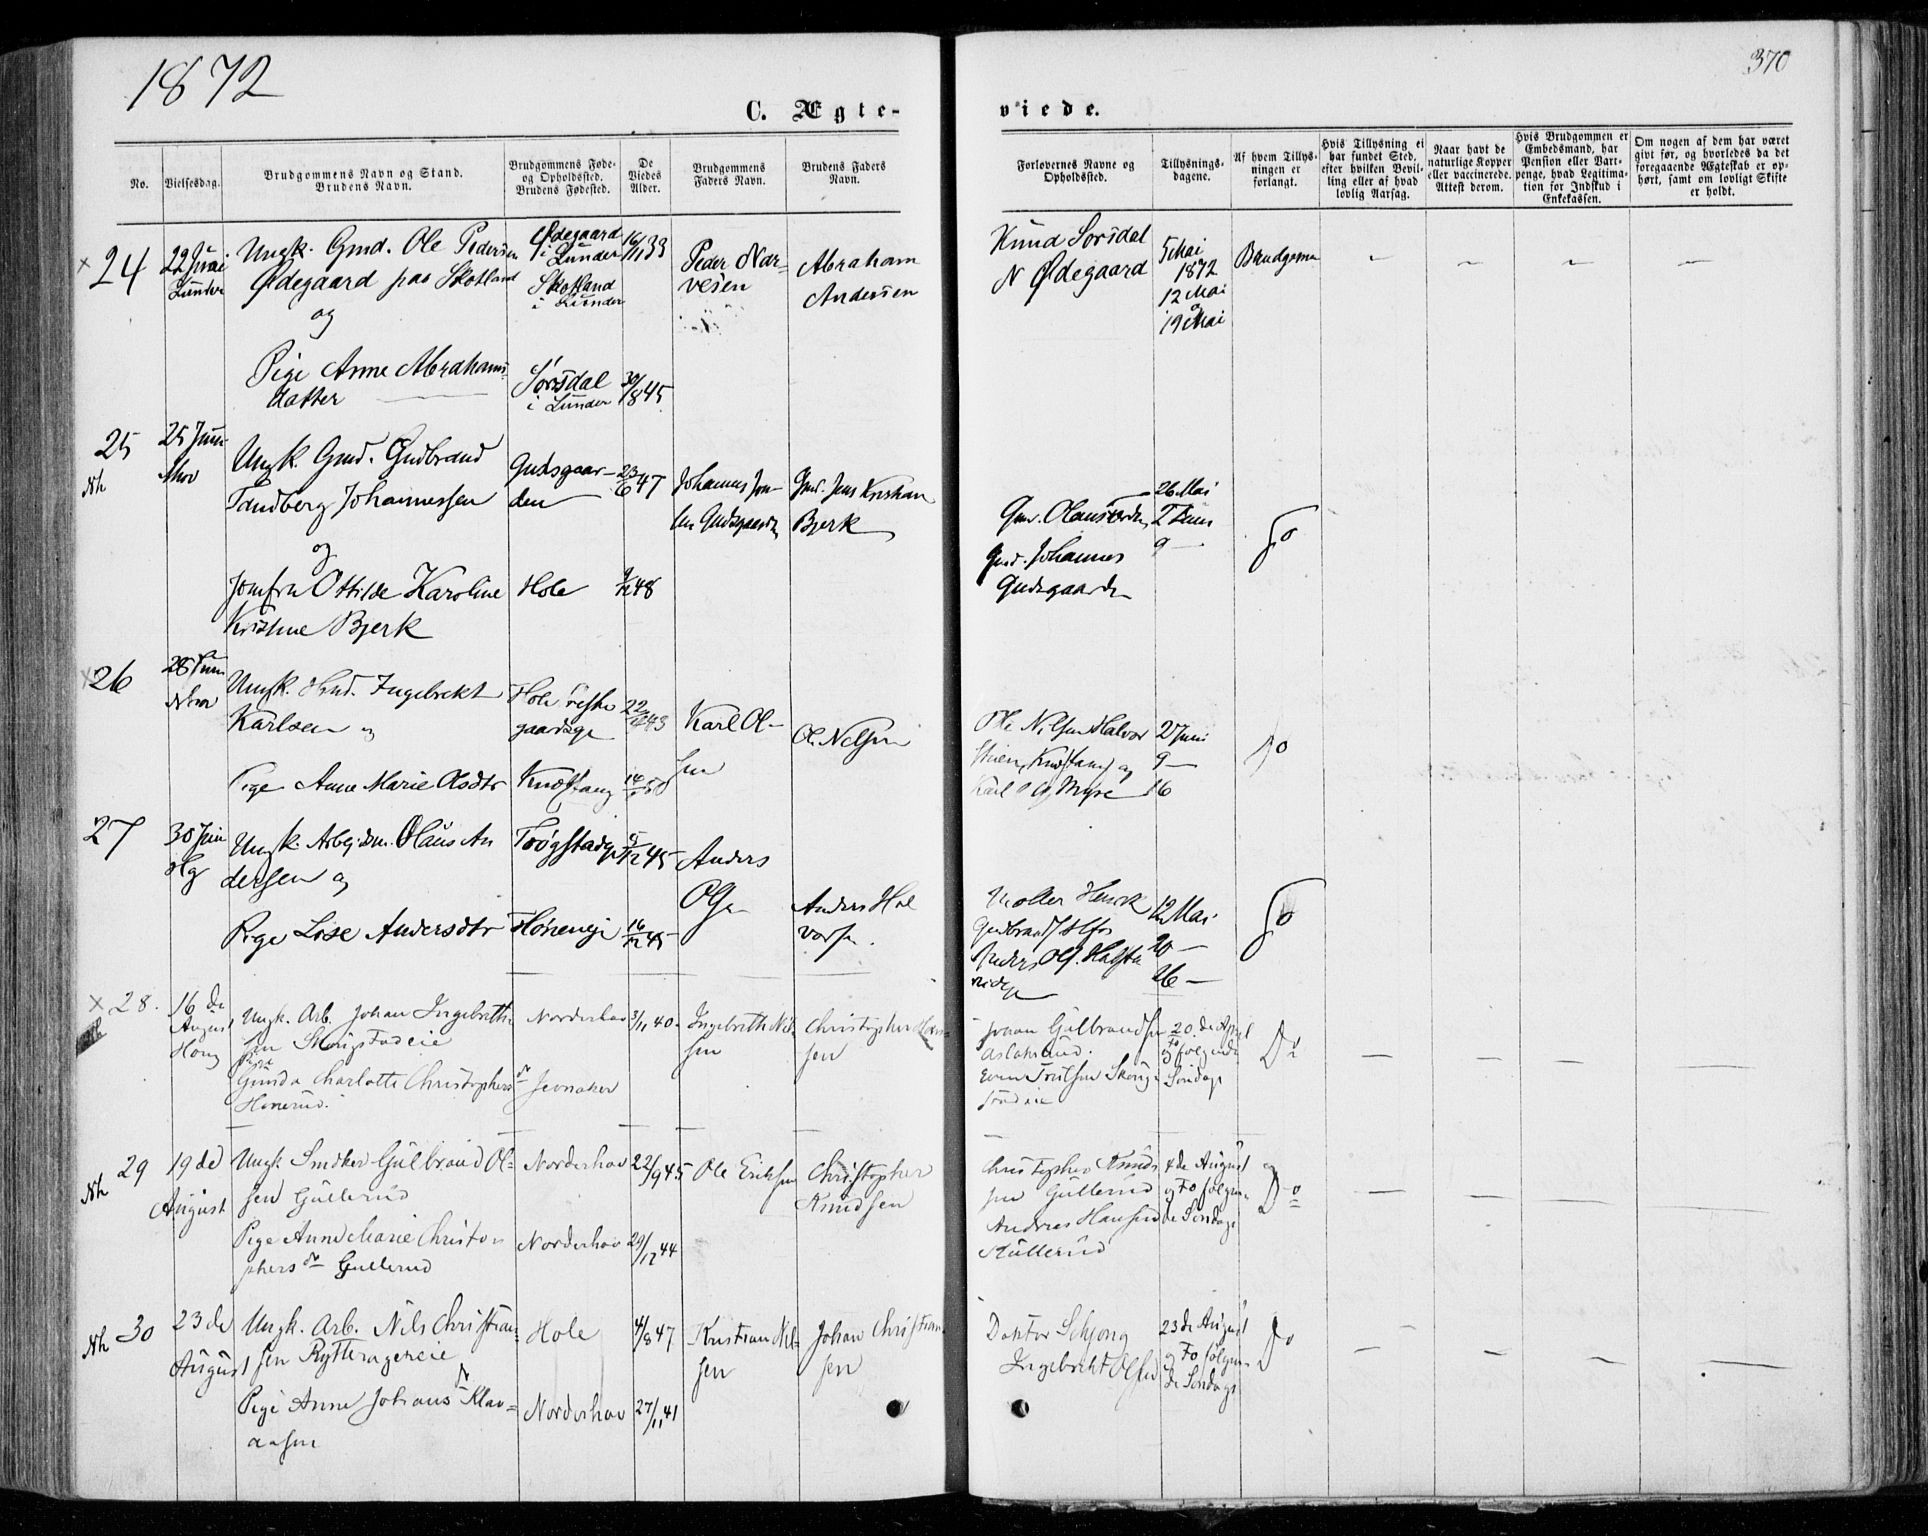 1872
370
C. Ægte-
viede.
No.
Vielsesdag.
Brudgommens Navn og Stand.
Brudens Navn.
Brudgommens Føde-
og Opholdssted.
Brudens Fødested.
De
Viedes
Alder.
Brudgommens
Faders Navn.
Brudens Faders
Navn.
Forlovernes Navne og
Opholdssted.
Tillysnings-
dagene.
Af hvem Tillys-
ningen er
forlangt.
Hvis Tillysning ei
har fundet Sted,
efter hvilken Bevil-
ling eller af hvad
lovlig Aarsag.
Naar havt de
naturlige Kopper
eller vaccinerede.
Attest derom.
Hvis Brudgommen er
Embedsmand, har
Pension eller Vart-
penge, hvad Legitima-
tion for Indskud i
Enkekassen.
Om nogen af dem har været
givt før, og hvorledes da det
foregaaende Ægteskab er op-
hørt, samt om lovligt Skifte
er holdt.
24
22 Juni
Lunder
Ungk. Gmd. Ole Pedersen
Ødegaard paa Skotland
og
Pige Anne Abrahams-
datter
Ødegaard
i Lunder
Skotland
i Lunder
Sørsdal
i Lunder
16/11 33
30/8 45
Peder Nar-
vesen
Abraham
Andersen
Knud Sørsdal
N Ødegaard
5 Mai
1872
12 Mai
og
19 Mai
Brudgome
25
Nh
25 Juni
Nhov
Ungk. Gmd. Gudbrand
Tandberg Johannessen
og
Jomfru Ottilde Karoline
Kristine Bjerk
Gudsgaar-
den
Hole
23/6 47
9/12 48
Johannes Jon-
sen Gudsgaarden
Gmd. Jens Kristian
Bjerk
Gmd. Johannes
Gudsgaarden
26 Mai
2 Juni
9 —
Do
26
28 Juni
Nhov
Ungk. Hmd. Ingebrekt
Karlsen og
Pige Anne Marie Olsdtr
Knestang
22/12 43
Karl Ol-
sen
Ole Nelsen
Ole Nilsen Halvor
Karl O Myre
2 Juni
9 —
16
Do
27
30 Juni
Hg
Ungk. Arbejdsm. Olaus An
dersen og
Pige Lise Andersdtr
Trøgstadeje
Hønenejе
5/12 45
16/12 45
Anders
Olsen
Anders Hal
vorsen.
Møller Henrik
Anders Ols.
12 Mai
20 —
26 —
Do
28.
16 de
August
Honeg
Ungk. Arb. Johan Ingebreths-
sen Skougstadeie
Pige
Gunda Charlotte Christophersdr
Honerud.
Norderhov
Jevnaker
3/11 40.
Ingebreth Nil-
sen
Christopher Han-
sen
Johan Gulbrandsen
Aslaksrud.
Even Trulsen Skoug-
stadeie
20 de April
og to følgende
Søndage
Do
29
Nh
19 de
August
Ungk. Smdker Gulbrand Ol-
sen Gullerud
Pige Anne Marie Christo-
phersdr Gullerud
Norderhov
Norderhov
22/9 45
29/12 44
Ole Eriksen
Christopher
Knudsen
Christopher Knud-
sen Gullerud
Andreas Hansen
Kullerud
4 de August
og to følgen-
de Søndage
Do
30
Nh
23 de
August
Ungk. Arb. Nils Christian-
sen Rytterageneie
Pige Anne Johansdr Klav-
aasen
Hole
Norderhov
4/8 47
27/11 41
Kristian Nil-
sen
Johan Christian-
sen
Doktor Schjong
Ingebreht Olsen
23 de August
og to følgen-
de Søndage
Do